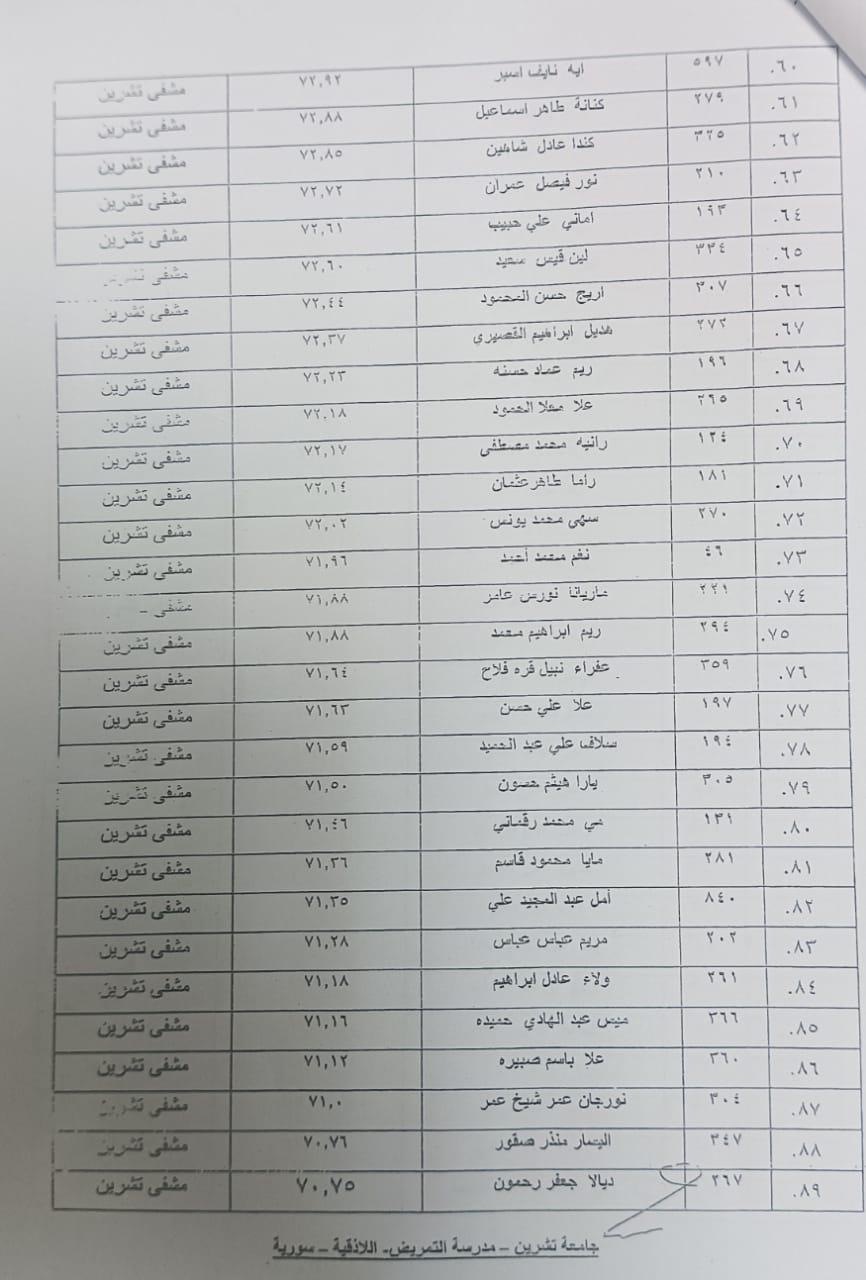 ٦٠. ٥٩٧ ايه نايف اسبر ٧٢,٩٢ مشفى تشرين
٦١. ٢٧٩ كنانة طاهر اسماعيل ٧٢,٨٨ مشفى تشرين
٦٢. ٣٢٥ كندا عادل شاهين ٧٢,٨٥ مشفى تشرين
٦٣. ٢١٠ نور فيصل عمران ٧٢,٧٢ مشفى تشرين
٦٤. ١٩٣ اماني علي حبيب ٧٢,٦١ مشفى تشرين
٦٥. ٣٣٤ لين قيس سعيد ٧٢,٦٠ مشفى تشرين
٦٦. ٣٠٧ اريج حسن المحمود ٧٢,٤٤ مشفى تشرين
٦٧. ٢٧٢ هديل ابراهيم القصيري ٧٢,٣٧ مشفى تشرين
٦٨. ١٩٦ ريم عماد حسنه ٧٢,٢٣ مشفى تشرين
٦٩. ٢٦٥ علا معلا الحمود ٧٢,١٨ مشفى تشرين
٧٠. ١٢٤ رانيه محمد مصطفى ٧٢,١٧ مشفى تشرين
٧١. ١٨١ راما طاهر عثمان ٧٢,١٤ مشفى تشرين
٧٢. ٢٧٠ سهى محمد يونس ٧٢,٠٢ مشفى تشرين
٧٣. ٤٦ نغم محمد أحمد ٧١,٩٦ مشفى تشرين
٧٤. ٢٢١ ماريانا نورس عامر ٧١,٨٨ مشفى
٧٥. ٢٩٤ ريم ابراهيم محمد ٧١,٨٨ مشفى تشرين
٧٦. ٣٥٩ عفراء نبيل قره فلاح ٧١,٦٤ مشفى تشرين
٧٧. ١٩٧ علا علي حسن ٧١,٦٣ مشفى تشرين
٧٨. ١٩٤ سلاف علي عبد الحميد ٧١,٥٩ مشفى تشرين
٧٩. ٣٠٥ يارا هيثم حسون ٧١,٥٠ مشفى تشرين
٨٠. ١٣١ مي محمد رقماني ٧١,٤٦ مشفى تشرين
٨١. ٢٨١ مايا محمود قاسم ٧١,٣٦ مشفى تشرين
٨٢. ٨٤٠ أمل عبد المجيد علي ٧١,٣٥ مشفى تشرين
٨٣. ٢٠٢ مريم عباس عباس ٧١,٢٨ مشفى تشرين
٨٤. ٢٦١ ولاء عادل ابراهيم ٧١,١٨ مشفى تشرين
٨٥. ٣٦٦ ميس عبد الهادي حميده ٧١,١٦ مشفى تشرين
٨٦. ٣٦٠ علا باسم صبيره ٧١,١٢ مشفى تشرين
٨٧. ٣٠٤ نورجان عمر شيخ عمر ٧١,٠ مشفى تشرين
٨٨. ٣٤٧ اليسار منذر صقور ٧٠,٧٦ مشفى تشرين
٨٩. ٢٦٧ ديالا جعفر رحمون ٧٠,٧٥ مشفى تشرين
جامعة تشرين – مدرسة التمريض- اللاذقية – سورية